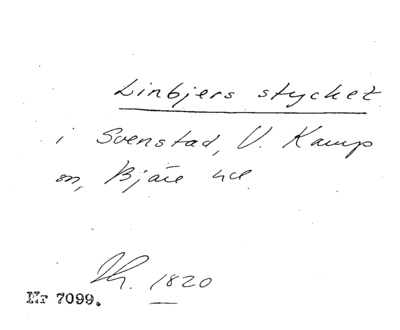 Linbjers stycket
i Svenstad, V. Karup
sn, Bjäre hd.
Lh. 1820
Nr 7099.